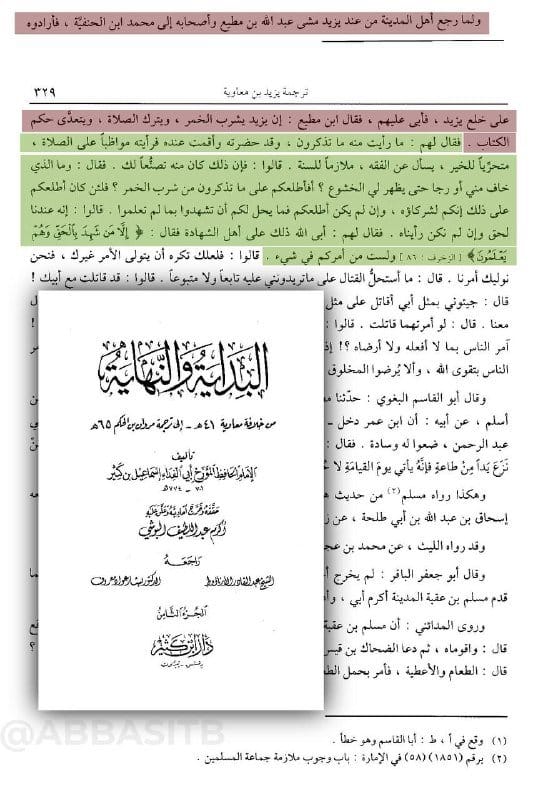 ولما رجع أهل المدينة من عند يزيد مشى عبد الله بن مطيع وأصحابه إلى محمد ابن الحنفيَّة ، فأرادوه
ترجمة يزيد بن معاوية
٣٢٩
على خلع يزيد ، فأبى عليهم ، فقال ابن مطيع : إن يزيد يشرب الخمر ، ويترك الصلاة ، ويتعدَّى حكم
الكتاب . فقال لهم : ما رأيت منه ما تذكرون ، وقد حضرته وأقمت عنده فرأيته مواظباً على الصلاة ،
متحرِّياً للخير ، يسأل عن الفقه ، ملازماً للسنة . قالوا : فإن ذلك كان منه تصنُّعاً لك . فقال : وما الذي
خاف مني أو رجا حتى يظهر لي الخشوع ؟ أفأطلعكم على ما تذكرون من شرب الخمر ؟ فلئن كان أطلعكم
على ذلك إنكم لشركاؤه ، وإن لم يكن أطلعكم فما يحل لكم أن تشهدوا بما لم تعلموا . قالوا : إنه عندنا
لحق وإن لم نكن رأيناه . فقال لهم : أبى الله ذلك على أهل الشهادة فقال : ﴿ إِلَّا مَن شَهِدَ بِالْحَقِّ وَهُمْ
يَعْلَمُونَ ﴾ [ الزخرف : ٨٦ ] ولست من أمركم في شيء . قالوا : فلعلك تكره أن يتولى الأمر غيرك ، فنحن
نوليك أمرنا . قال : ما أستحلُّ القتال على ماتريدونني عليه تابعاً ولا متبوعاً . قالوا : قد قاتلت مع أبيك !
قال : جيئوني بمثل أبي أقاتل على مثل
معنا . قال : لو أمرتهما قاتلت . قالوا :
آمر الناس بما لا أفعله ولا أرضاه ؟! إذاً
الناس بتقوى الله ، وألا يُرضوا المخلوق
وقال أبو القاسم البغوي : حدَّثنا
أسلم ، عن أبيه : أن ابن عمر دخل -
عبد الرحمن ، ضعوا له وسادة . فقال :
نَزَعَ يَداً مِنْ طاعةٍ فإنَّهُ يأتي يومَ القيامةِ لا
وهكذا رواه مسلم(٢) من حديث
إسحاق بن عبد الله بن أبي طلحة ، عن
وقد رواه الليث ، عن محمد بن
وقال أبو جعفر الباقر : لم يخرج
قدم مسلم بن عقبة المدينة أكرم أبي ،
وروى المدائني : أن مسلم بن عقبة
قال : واقوماه ، ثم دعا الضحاك بن
قال : الطعام والأعطية ، فأمر بحمل
البداية والنهاية
من خلافة معاوية ٤١هـ - إلى ترجمة مروان بن الحكم ٦٥هـ
تأليف
الإمام الحافظ المؤرخ أبي الفداء إسماعيل بن كثير
٧٠١ - ٧٧٤هـ
حققه وخرج أحاديثه وعلق عليه
أكرم عبد اللطيف البوشي
راجعه
الشيخ عبد القادر الأرناؤوط
الدكتور بشار عواد معروف
الجزء الثامن
دار ابن كثير
دمشق - بيروت
@ABBASITB
(١) وقع في أ ، ط : أبا القاسم وهو خطأ .
(٢) برقم (١٨٥١) (٥٨) في الإمارة : باب وجوب ملازمة جماعة المسلمين .